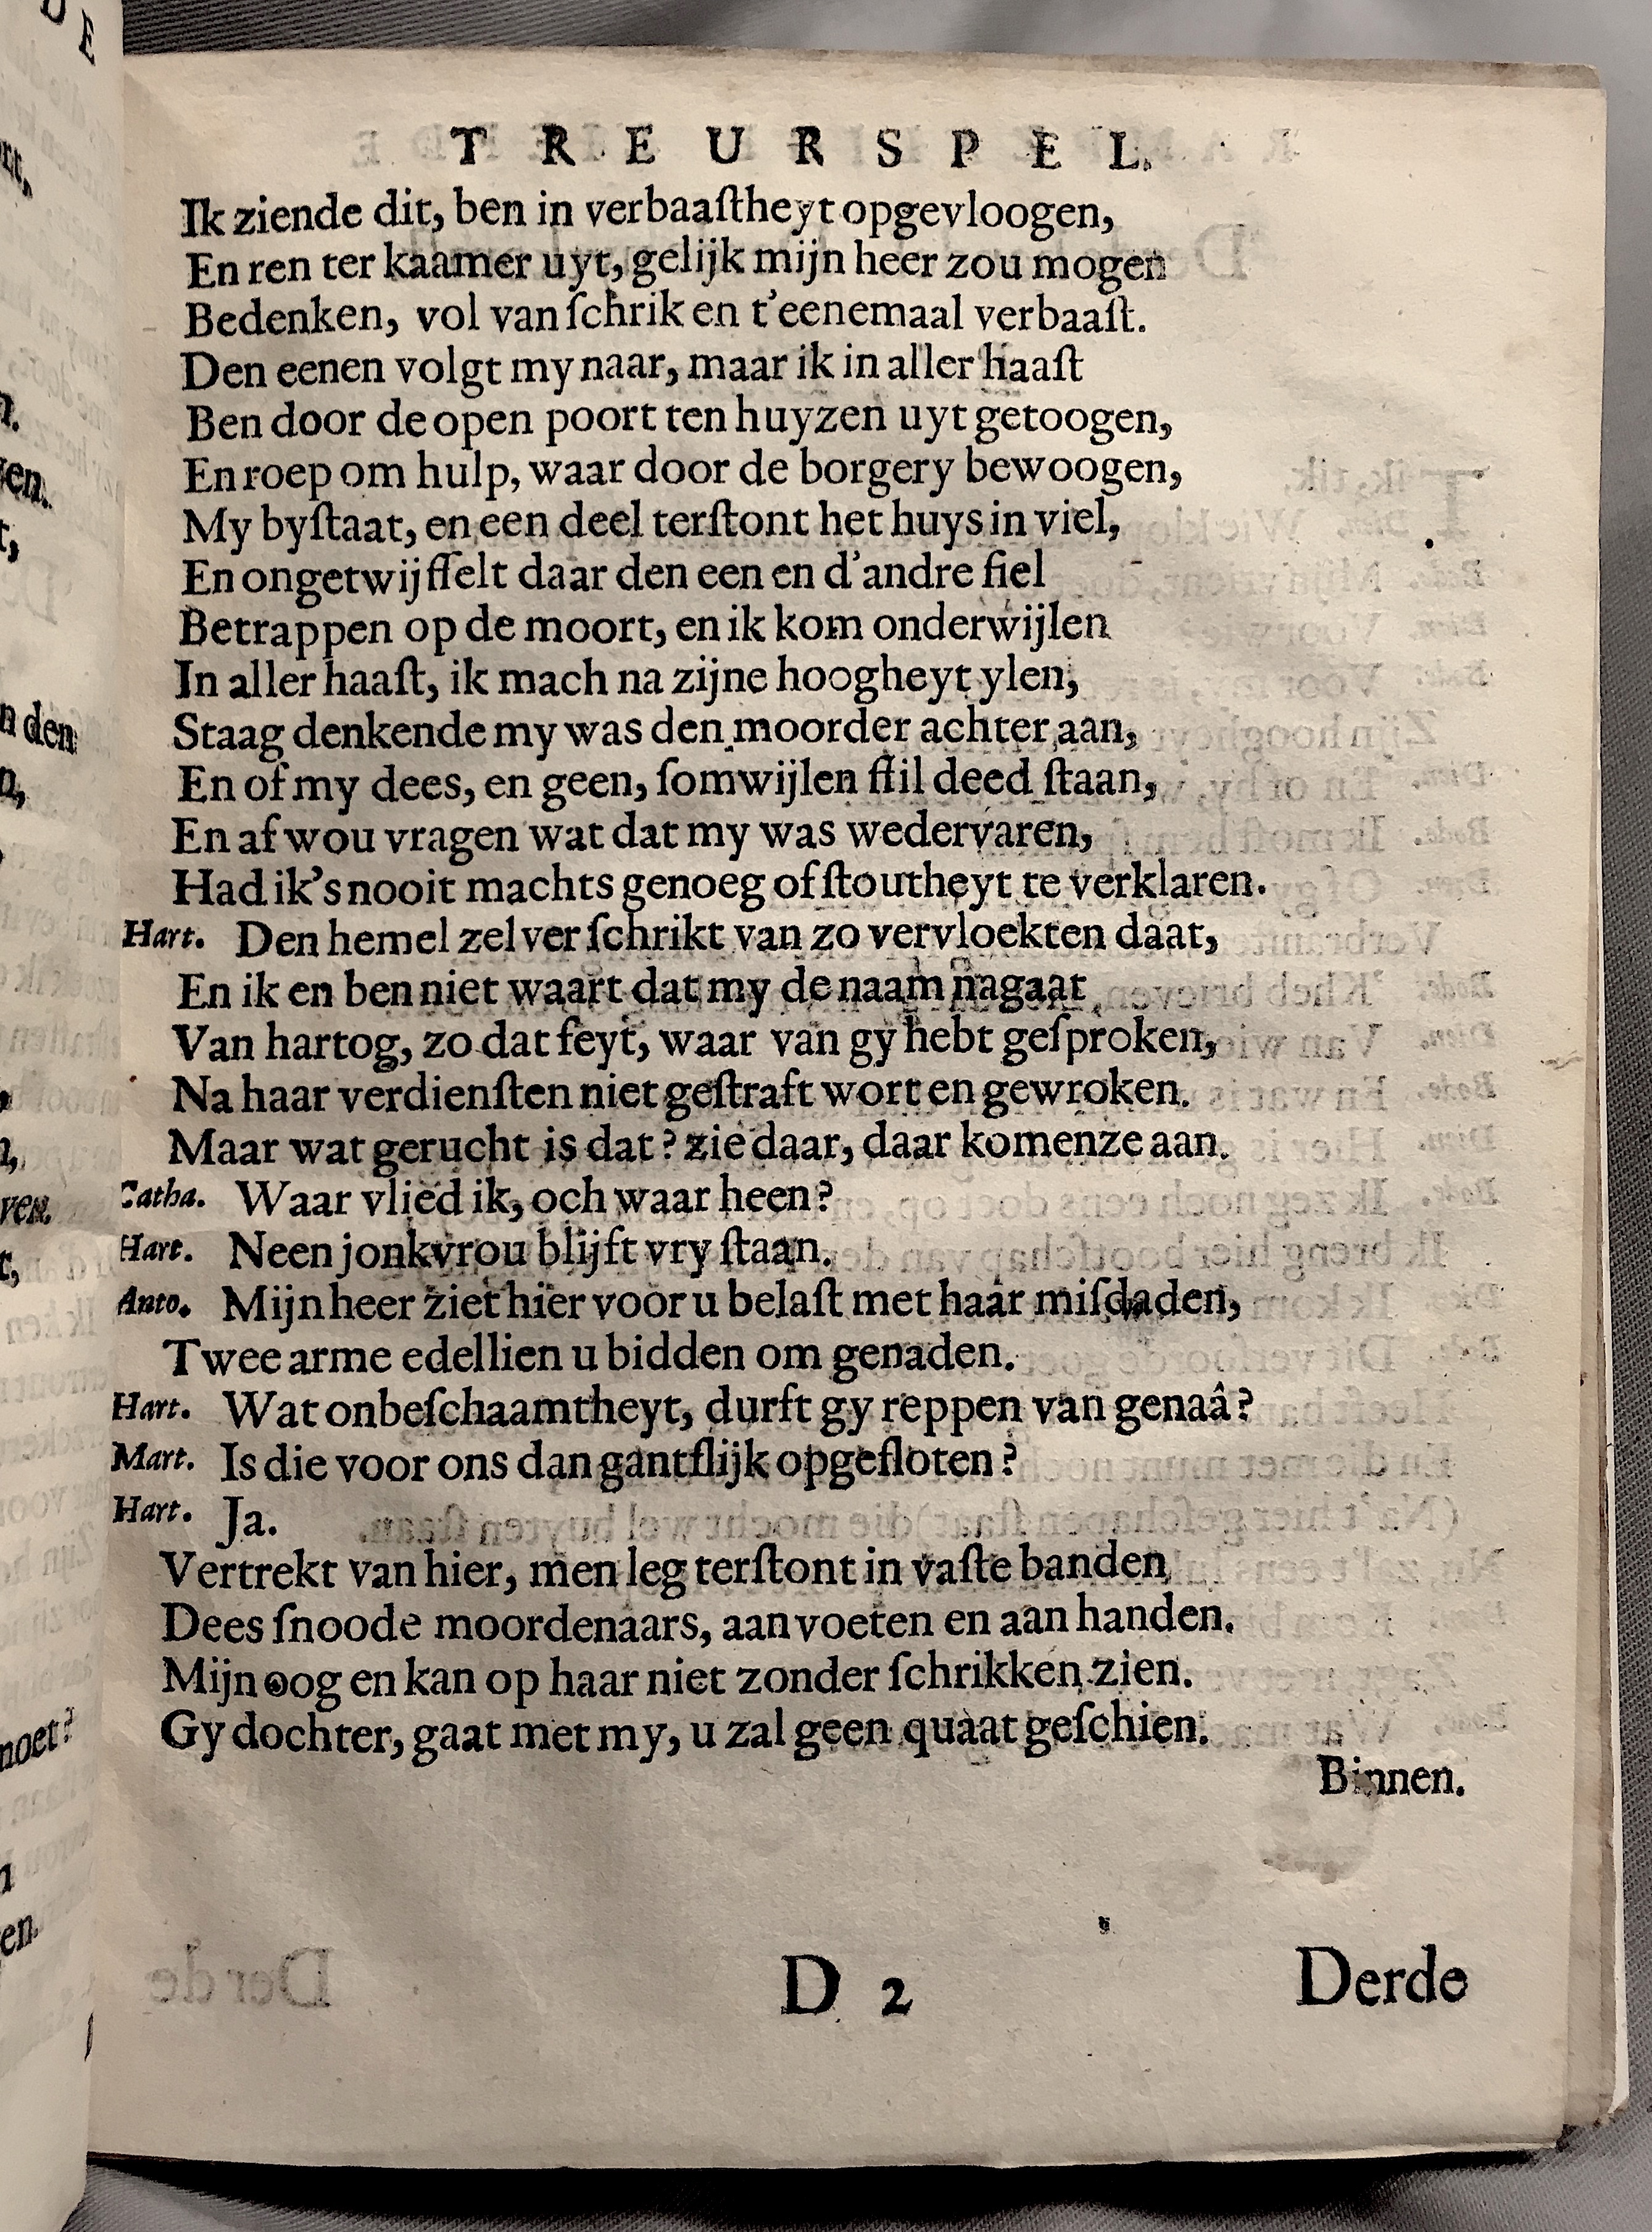 TREURSPEL.
Ik ziende dit, ben in verbaaſtheyt opgevloogen,
En ren ter kaamer uyt, gelijk mijn heer zou mogen
Bedenken, vol van ſchrik en t'eenemaal verbaaſt.
Den eenen volgt my naar, maar ik in aller haaſt
Ben door de open poort ten huyzen uyt getoogen,
En roep om hulp, waar door de borgery bewoogen,
My byſtaat, en een deel terſtont het huys in viel,
En ongetwijffelt daar den een en d'andre fiel
Betrappen op de moort, en ik kom onderwijlen
In aller haaſt, ik mach na zijne hoogheyt ylen,
Staag denkende my was den moorder achter aan,
En of my dees, en geen, ſomwijlen ſtil deed ſtaan,
En af wou vragen wat dat my was wedervaren,
Had ik's nooit machts genoeg of ſtoutheyt te verklaren.
Hart. Den hemel zelver ſchrikt van zo vervloekten daat,
En ik en ben niet waart dat my de naam nagaat
Van hartog, zo dat feyt, waar van gy hebt geſproken,
Na haar verdienſten niet geſtraft wort en gewroken.
Maar wat gerucht is dat? zie daar, daar komenze aan.
Catha. Waar vlied ik, och waar heen?
Hart. Neen jonkvrou blijft vry ſtaan.
Anto. Mijn heer ziet hier voor u belaſt met haar miſdaden,
Twee arme edellien u bidden om genaden.
Hart. Wat onbeſchaamtheyt, durft gy reppen van genaâ?
Mart. Is die voor ons dan gantſlijk opgeſloten?
Hart. Ja.
Vertrekt van hier, men leg terſtont in vaſte banden
Dees ſnoode moordenaars, aan voeten en aan handen.
Mijn oog en kan op haar niet zonder ſchrikken zien.
Gy dochter, gaat met my, u zal geen quaat geſchien.
Binnen.
D 2
Derde